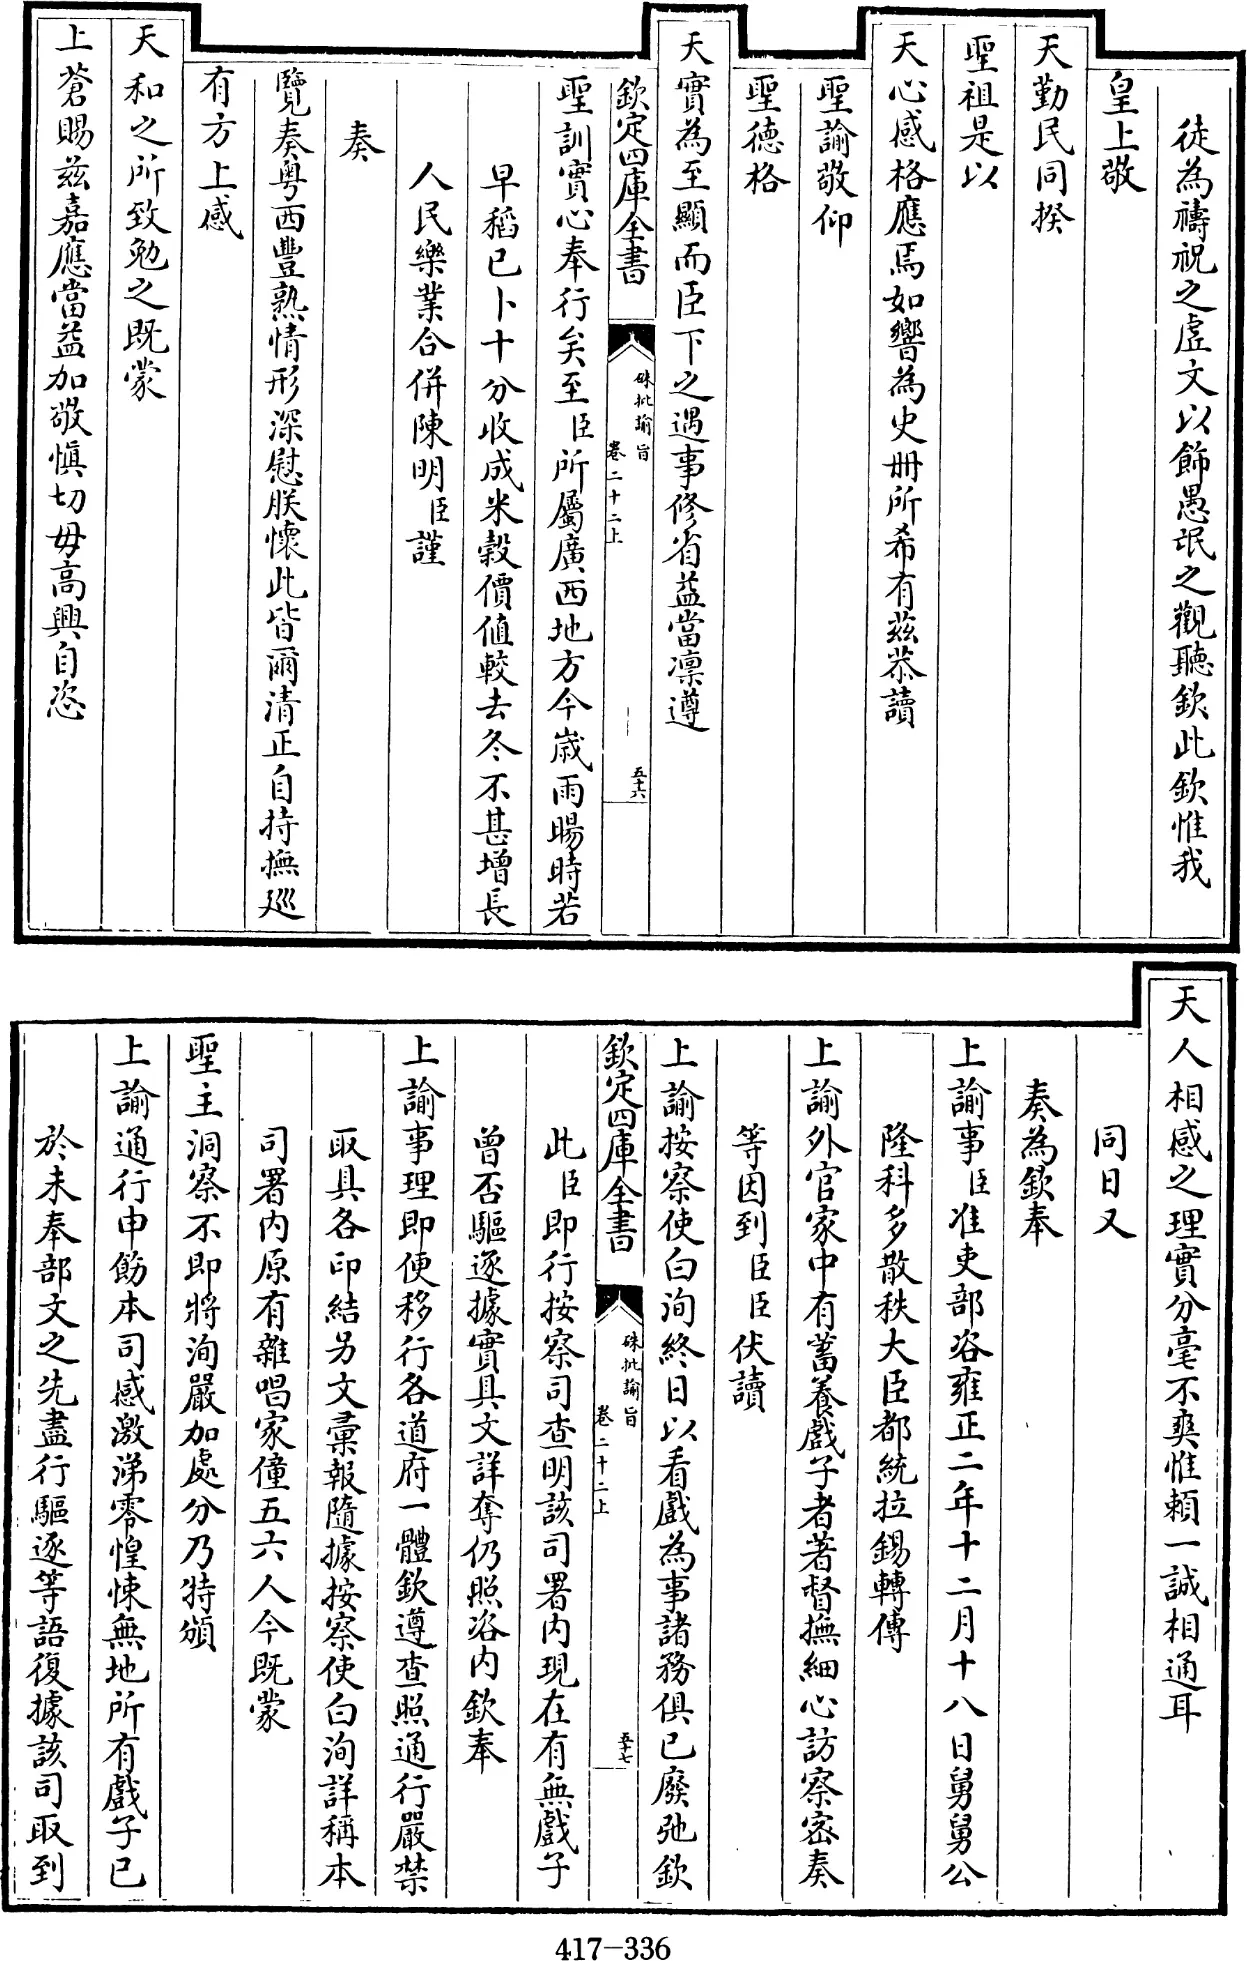 徒為禱祝之虛文以飾愚氓之觀聽欽此欽惟我
皇上敬
天勤民同揆
聖祖是以
天心感格應焉如響為史冊所希有茲恭讀
聖諭敬仰
聖德格
天實為至顯而臣下之遇事修省益當凜遵
欽定四庫全書
硃批諭旨
卷二十二上
五十六
聖訓實心奉行矣至臣所屬廣西地方今歲雨暘時若
早稻已卜十分收成米穀價值較去冬不甚增長
人民樂業合併陳明臣謹
奏
覽奏粵西豐熟情形深慰朕懷此皆爾清正自持撫巡
有方上感
天和之所致勉之既蒙
上蒼賜茲嘉應當益加敬慎切毋高興自恣
天人相感之理實分毫不爽惟賴一誠相通耳
同日又
奏為欽奉
上諭事臣准吏部咨雍正二年十二月十八日舅舅公
隆科多散秩大臣都統拉錫轉傳
上諭外官家中有蓄養戲子者著督撫細心訪察密奏
等因到臣臣伏讀
上諭按察使白洵終日以看戲為事諸務俱已廢弛欽
欽定四庫全書
硃批諭旨
卷二十二上
五十七
此臣即行按察司查明該司署內現在有無戲子
曾否驅逐據實具文詳奪仍照咨內欽奉
上諭事理即便移行各道府一體欽遵查照通行嚴禁
取具各印結另文彙報隨據按察使白洵詳稱本
司署內原有雜唱家僮五六人今既蒙
聖主洞察不即將洵嚴加處分乃特頒
上諭通行申飭本司感激涕零惶悚無地所有戲子已
於未奉部文之先盡行驅逐等語復據該司取到
417-336